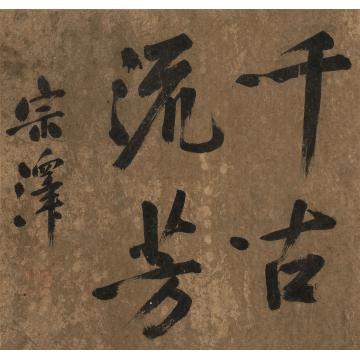 千古
流芳
宗澤